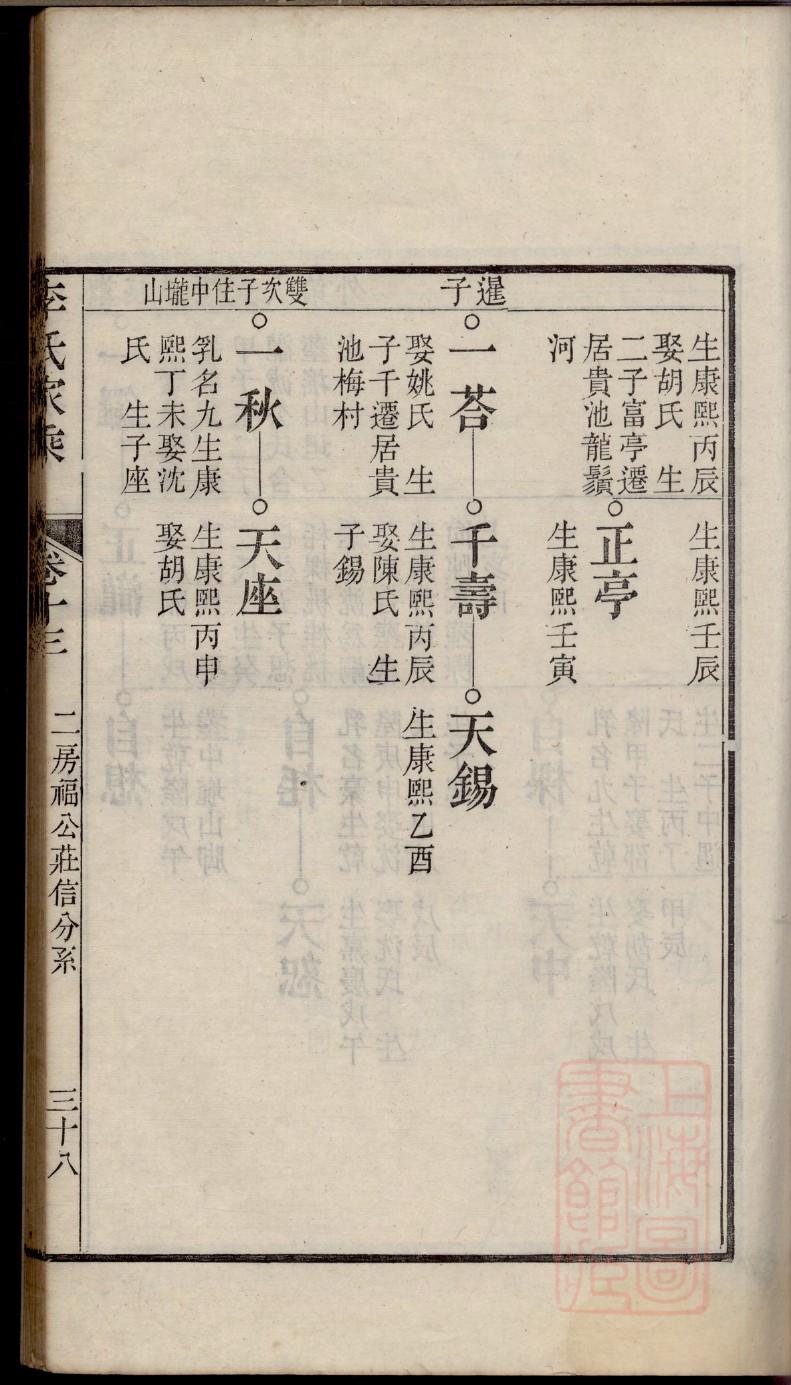 生康熙丙辰
娶胡氏 生
二子富亭遷
居貴池龍鬚
河
生康熙壬辰
正亭
生康熙壬寅
暹子
一荅
娶姚氏 生
子千遷居貴
池梅村
千壽
生康熙丙辰
娶陳氏 生
子錫
天錫
生康熙乙酉
雙次子住中壠山
一秋
乳名九生康
熙丁未娶沈
氏 生子座
天座
生康熙丙申
娶胡氏
李氏家乘
卷十三
二房福公莊信分系
三十八
上海圖
書館藏